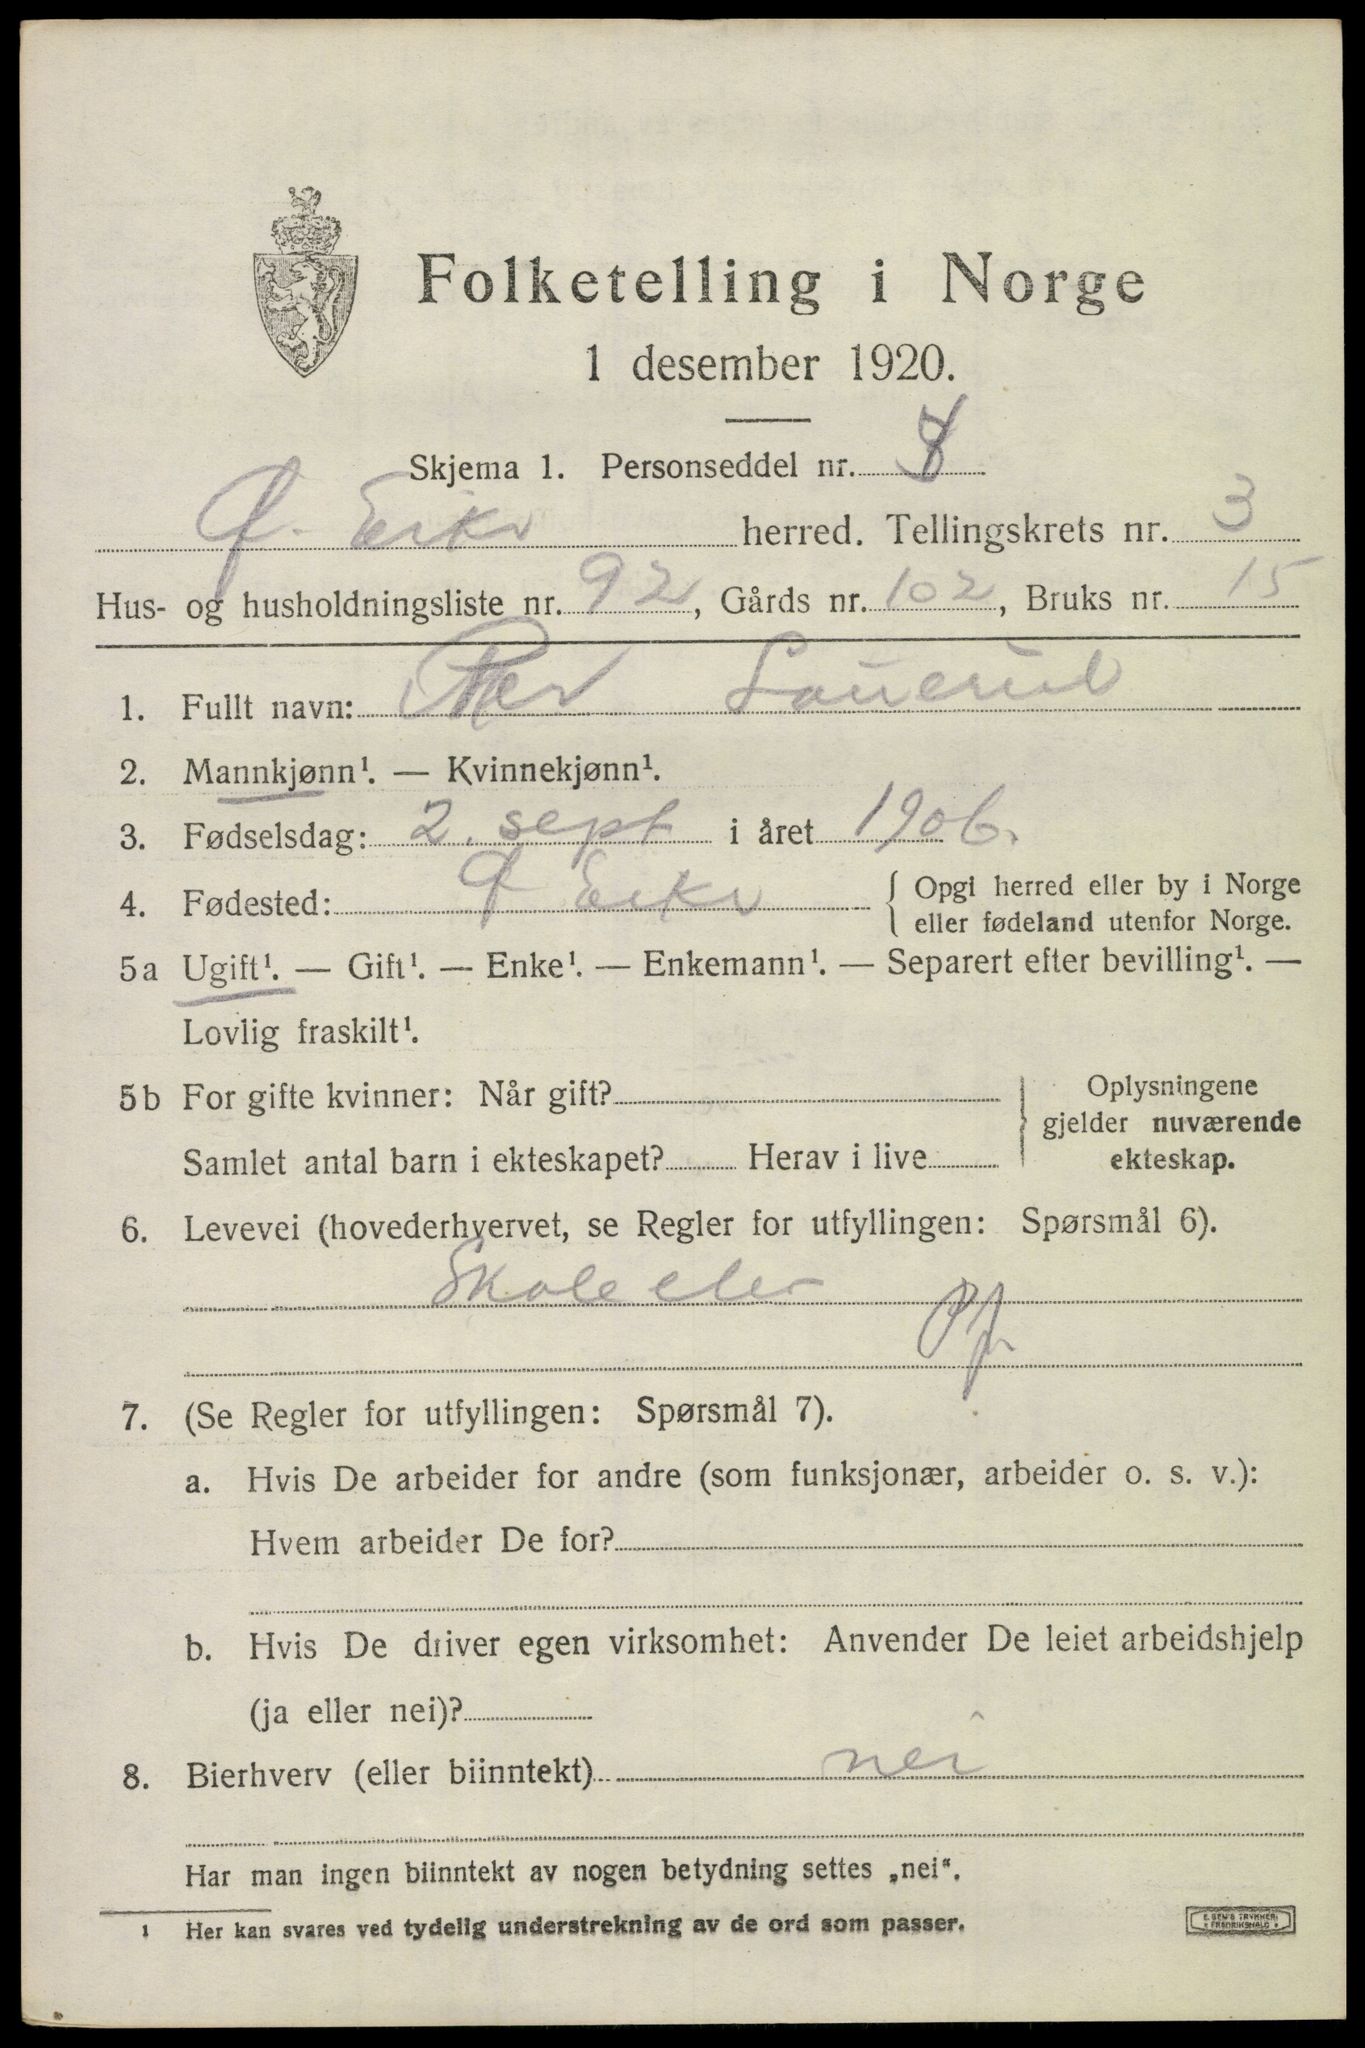 Folketelling i Norge
1 desember 1920.
Skjema 1. Personseddel nr. 8
Ø. Eiker herred. Tellingskrets nr. 3
Hus- og husholdningsliste nr. 92, Gårds nr. 102, Bruks nr. 15
1. Fullt navn:
2. Mannkjønn¹. — Kvinnekjønn¹.
3. Fødselsdag: 2. sept i året 1906.
4. Fødested: Ø Eiker { Opgi herred eller by i Norge
eller fødeland utenfor Norge.
5a Ugift¹. — Gift¹. — Enke¹. — Enkemann¹. — Separert efter bevilling¹. —
Lovlig fraskilt¹.
5b For gifte kvinner: Når gift?
Samlet antal barn i ekteskapet? Herav i live
Oplysningene
gjelder nuværende
ekteskap.
6. Levevei (hovederhvervet, se Regler for utfyllingen: Spørsmål 6).
Skoleelev
7. (Se Regler for utfyllingen: Spørsmål 7).
a. Hvis De arbeider for andre (som funksjonær, arbeider o. s. v.):
Hvem arbeider De for?
b. Hvis De driver egen virksomhet: Anvender De leiet arbeidshjelp
(ja eller nei)?
8. Bierhverv (eller biinntekt) nei
Har man ingen biinntekt av nogen betydning settes „nei".
¹ Her kan svares ved tydelig understrekning av de ord som passer.